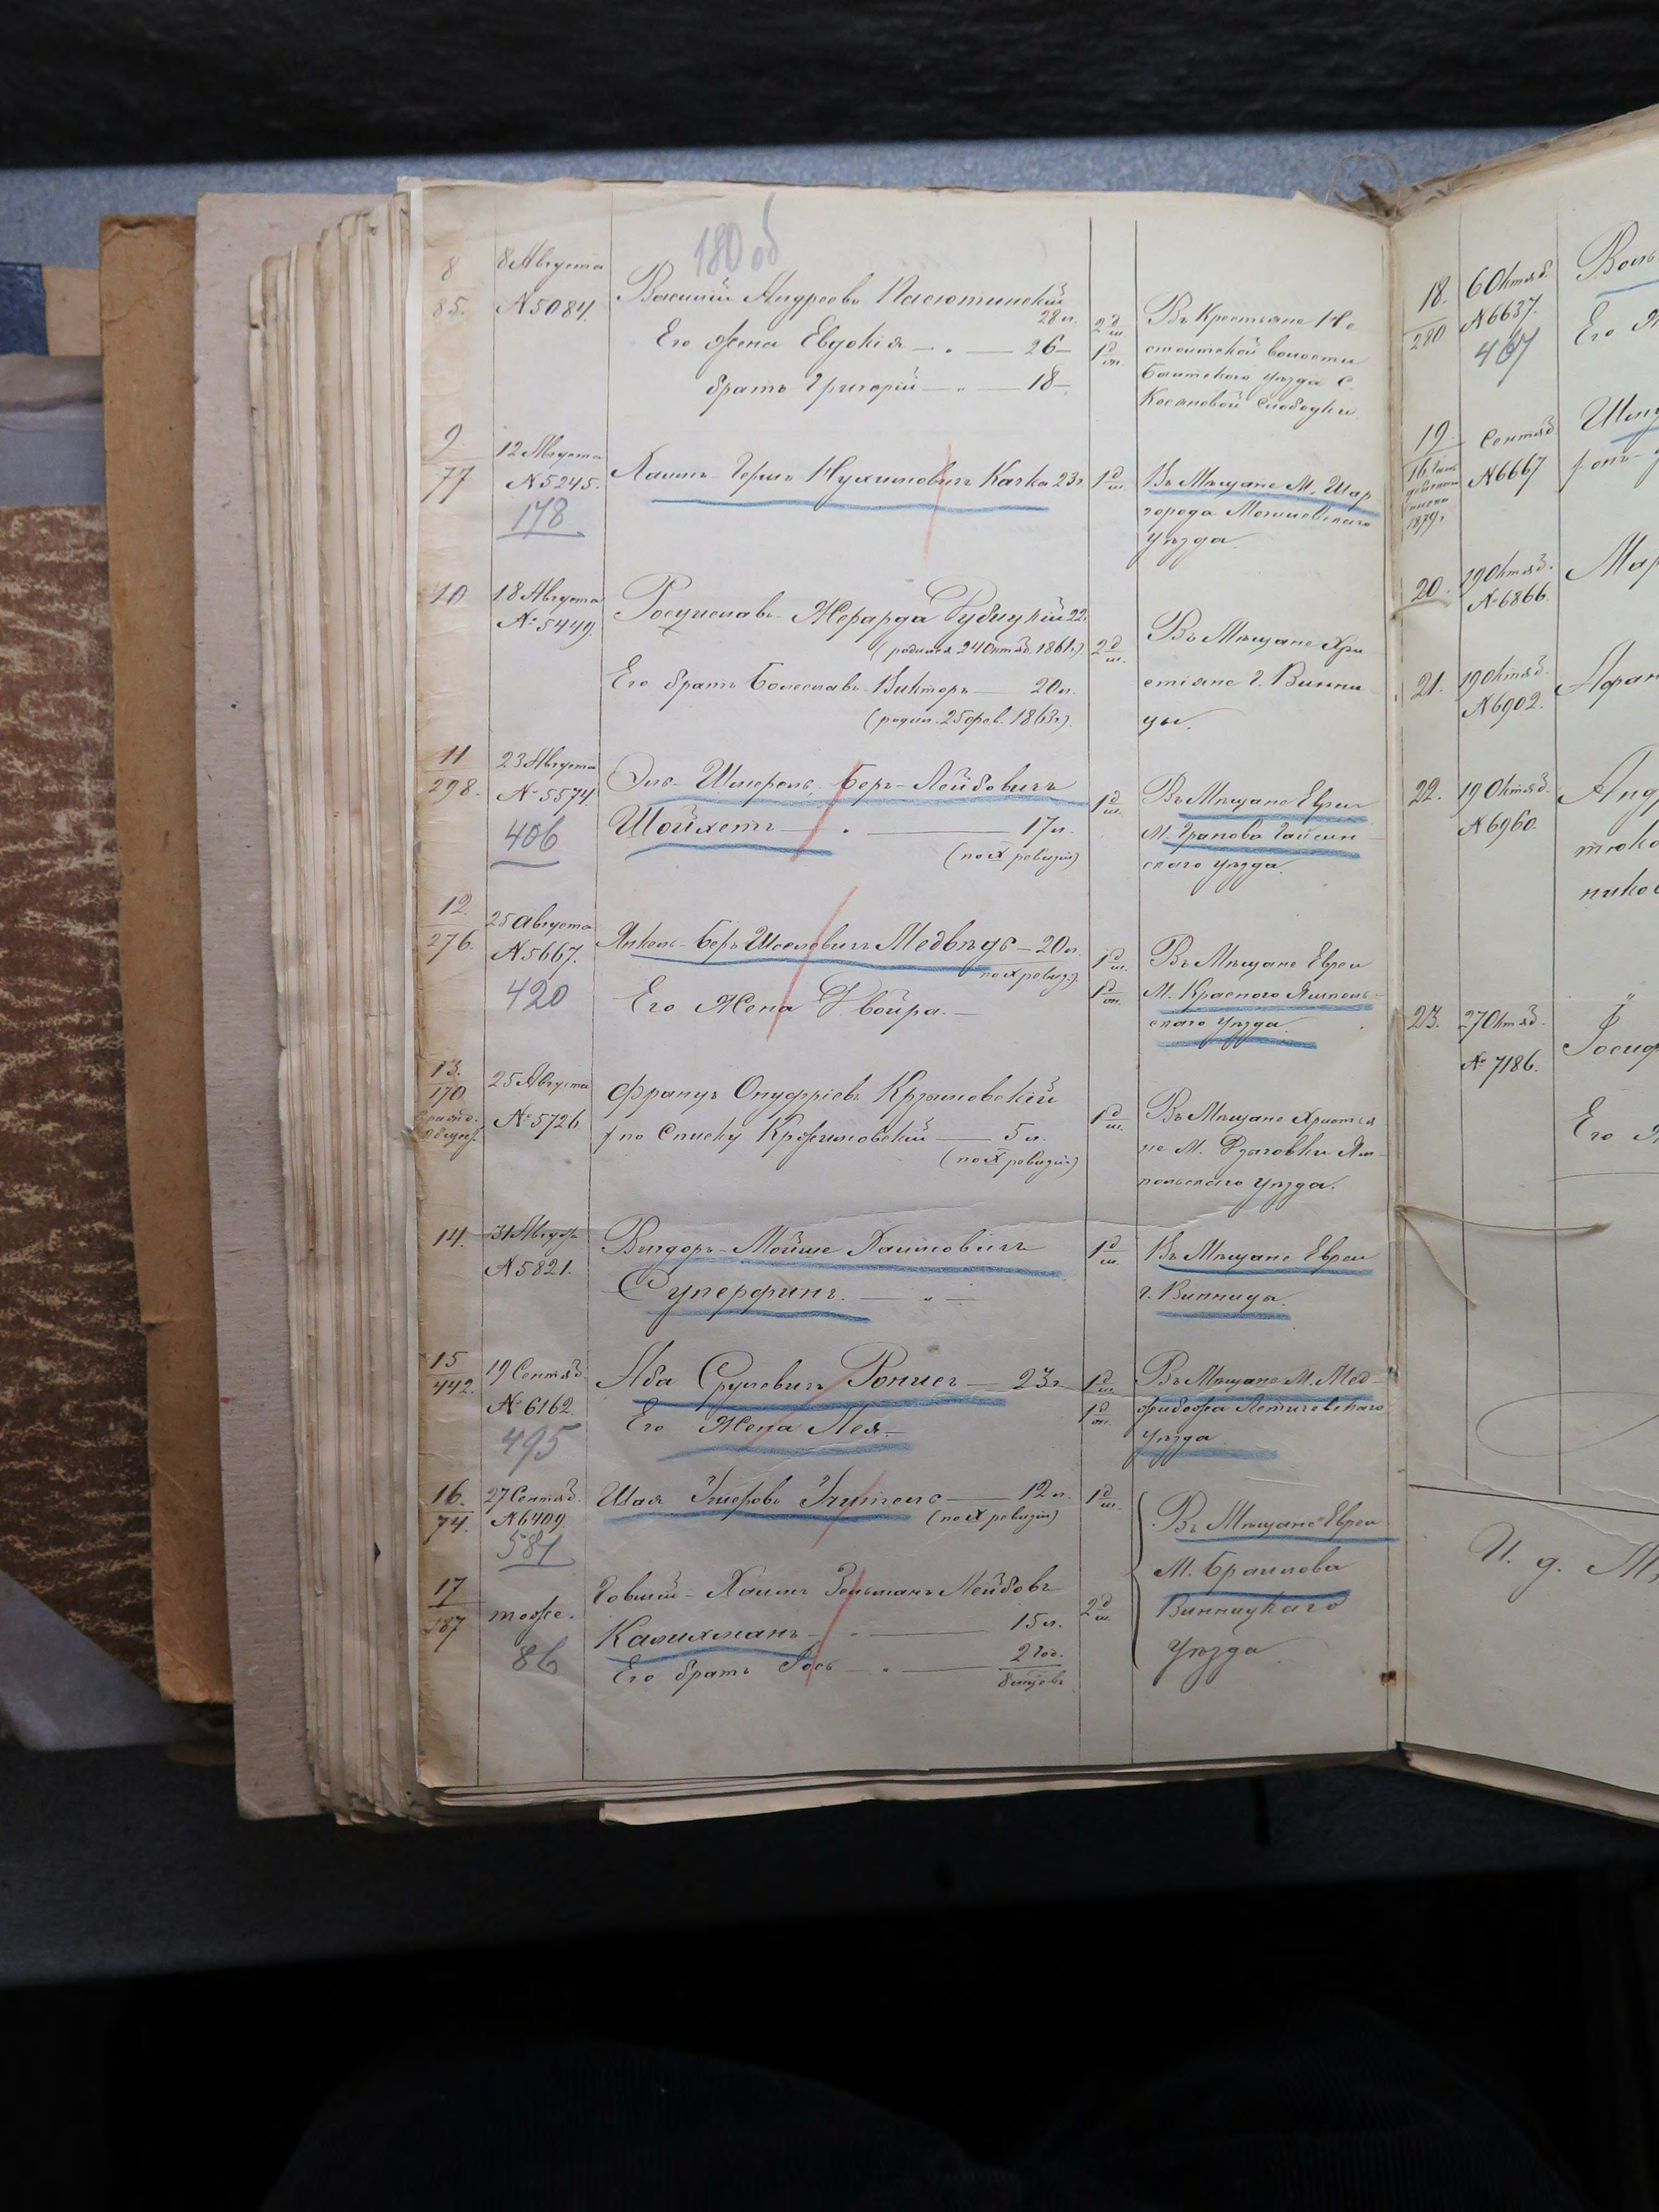 180 об
8
85.
8 Августа
№ 5084.
Василий Андреевъ
28 л.
Его жена Евдокія — „ — 26 —
братъ Григорій — „ — 18 —
2 д. м.
1 д. ж.
Въ Крестьяне Не
стоитской волости
Балтского уѣзда с.
Косановой Слободки
9.
77
12 Августа
№ 5245.
178
Хаимъ-Гершъ Нухимовичъ Качка 23 г.
1 д. м.
Въ Мѣщане М. Шар
города Могилевскаго
уѣзда
10
18 Августа
№ 5449.
Рогуславъ-Жерарда Рубицкій 22.
(родился 24 Октяб. 1861 г.)
Его братъ Болеславъ-Викторъ — 20 л.
(родил. 25 фев. 1863 г.)
2 д. м.
Въ Мѣщане Хри
стіяне г. Винни
цы.
11
298.
23 Августа
№ 5574.
406
Эль-Шмерель, Беръ-Лейбовичъ
Шойхетъ — „ — 17 л.
(по X ревизіи)
1 д. м.
Въ Мѣщане Евреи
М. Гранова Гайсин
скаго уѣзда.
12.
276.
25 Августа
№ 5667.
420
Янкель-Беръ Шоелевичъ Медвѣдь — 20 л.
по X ревиз.)
Его Жена Двойра. —
1 д. м.
1 д. ж.
Въ Мѣщане Евреи
М. Краснаго Ямполь-
скаго уѣзда.
13.
170
25 Августа
№ 5726
Францъ Онуфріевъ Крзановскій
(по списку Кржижовскій — 5 л.
(по X ревизіи)
1 д. м.
Въ Мѣщане Христія
не М. Дзыговки Ям-
польскаго уѣзда.
14.
31 Август.
№ 5821.
Вигдоръ-Мойше Хаимовичъ
Суперфинъ. — „ —
1 д. м.
Въ Мѣщане Евреи
г. Винница.
15
442.
19 Сентяб.
№ 6162.
495
Аба Срулевичъ Ронисъ — 23 г.
Его Жена Лея. —
1 д. м.
1 д. ж.
Въ Мѣщане М. Мед-
жибожа Летичевскаго
уѣзда
16.
74.
27 Сентяб.
№ 6409.
584
Шая — 12 л.
(по X ревизіи)
1 д. м.
Въ Мѣщане Евреи
М. Браилова
Винницкаго
уѣзда
17
187
тоже.
86
Говшій-Хаимъ Зельманъ Лейбовъ
Калихманъ — „ — 15 л.
Его братъ Іось — „ — 2 год.
8 мѣсяц.
2 д. м.
18.
280
6 Октяб.
№ 6637.
467
Его
19.
1879 г.
Сентяб.
№ 6667
20.
19 Октяб.
№ 6866.
Мар
21.
19 Октяб.
№ 6902.
Афан
22.
19 Октяб.
№ 6960.
Андр
тюко
нико
23.
27 Октяб.
№ 7186.
Іосиф
Его
И. д.